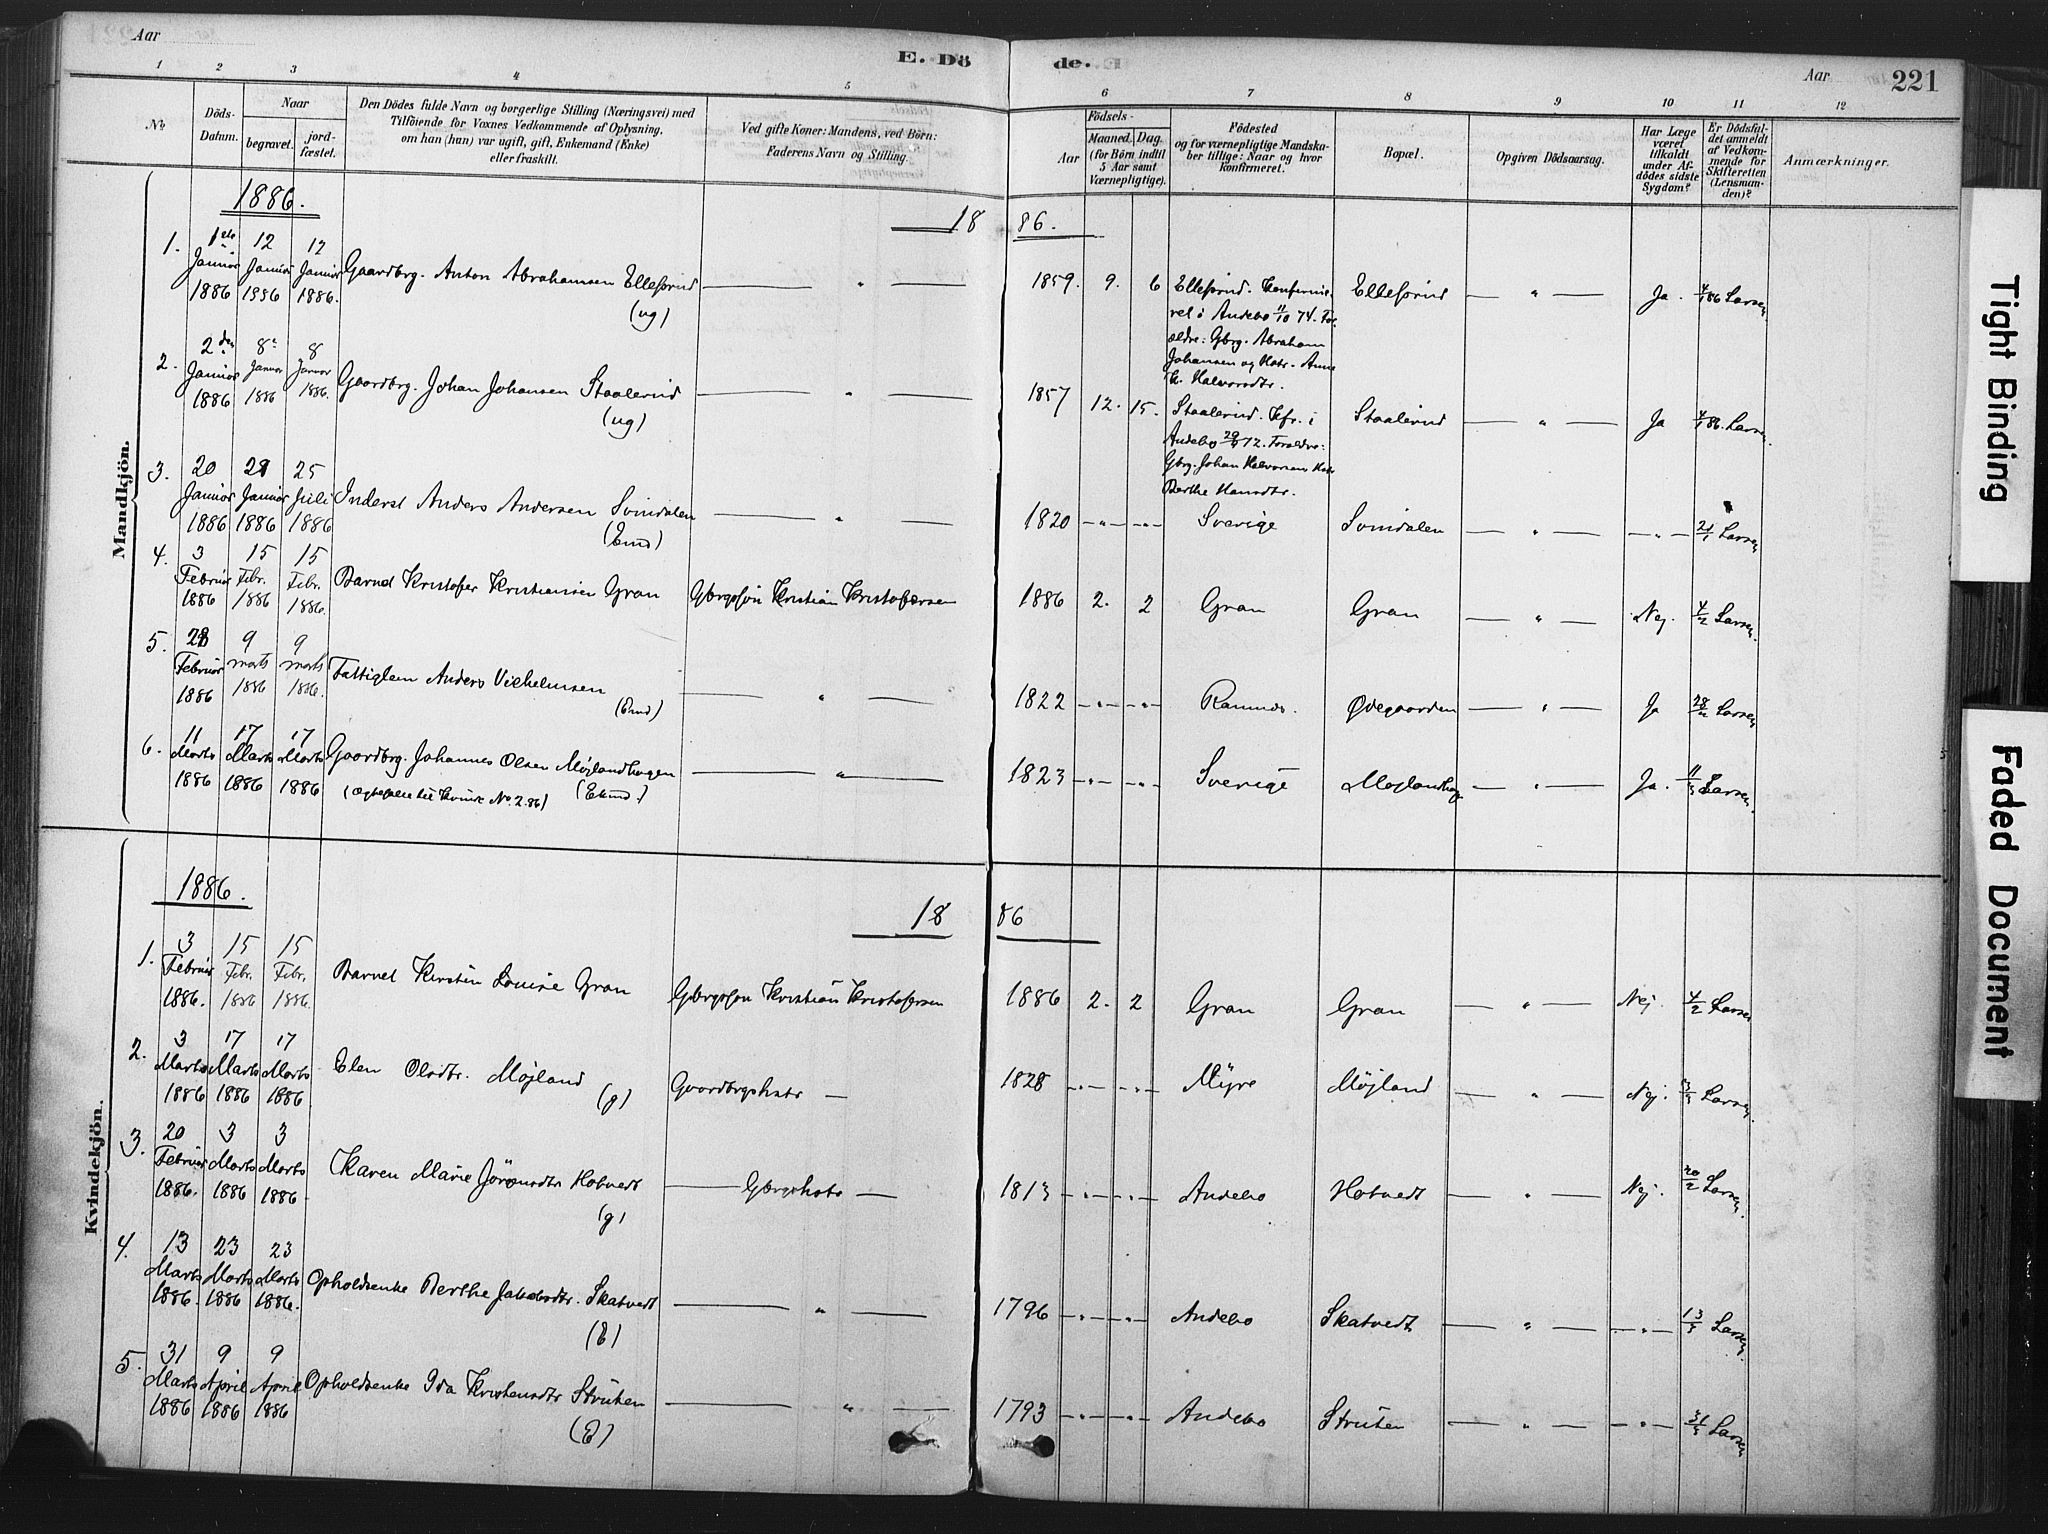 Aar
E. Dö
de.
Aar
221
1 2 3 4 5 6 7 8 9 10 11 12
No
Döds-
Datum.
Naar
begravet.
jord-
fæstet.
Den Dödes fulde Navn og borgerlige Stilling (Næringsvei) med
Tilföiende for Voxnes Vedkommende af Oplysning,
om han (hun) var ugift, gift, Enkemand (Enke)
eller fraskilt.
Ved gifte Koner: Mandens, ved Börn:
Faderens Navn og Stilling.
Födsels-
Aar
Maaned. Dag.
(for Börn indtil
5 Aar samt
Værnepligtige).
Födested
og for værnepligtige Mandska-
ber tillige: Naar og hvor
konfirmeret.
Bopæl.
Opgiven Dödsaarsag.
Har Læge
været
tilkaldt
under Af-
dödes sidste
Sygdom?
Er Dödsfal-
det anmeldt
af Vedkom-
mende for
Skifteretten
(Lensman-
den)?
Anmærkninger.
Mandkjön.
1886.
18 86.
1. 1ste Januar 1886 12 Januar 1886 12 Januar 1886. Gaardbrg. Anton Abrahamsen Ellefsrud (ug) — " — 1859. 9. 6 Ellefsrud. Konfirme-
ret i Andebo 11/10 74. For-
ældre: Gbrg. Abraham
Johansen og Hstr. Anne
K. Halvorsdtr.
Ellefsrud — " — Ja. 4/1 86 Larsen.
2. 2den Januar 1886 8 Januar 1886 8 Januar 1886. Gaardbrg. Johan Johansen Staalerud (ug) — " — 1857 12. 15. Staalerud. Kfr. i
Andebo 29/9 72. Forældre:
Gbrg. Johan Halvorsen Hstr.
Berthe Hansdtr.
Staalerud — " — Ja 4/1 86. Larsen.
3. 20 Januar 1886 28 Januar 1886 25 Juli 1886 Inderst Anders Andersen Svindalen (Emd) — " — 1820 — " — — " — Sverige Svindalen — " — — " — 21/1 Larsen
4. 3 Februar 1886 15 Febr. 1886 15 Febr. 1886. Barnet Kristofer Kristiansen Gran Gbrgssøn Kristian Kristofersen 1886 2. 2 Gran Gran — " — Nej. 4/2 Larsen.
5. 28 Februar 1886 9 marts 1886 9 marts 1886. Fattiglem Anders Vilhelmsen (Emd) — " — 1822 — " — — " — Ramnes. Ødegaarden — " — Ja 28/2 Larsen
6. 11 Marts 1886 17 Marts 1886 17 Marts 1886 Gaardbrg. Johannes Olsen Møjlandhagen (Ekmd.)
(Ægtefælle til Kvindk No. 2. 86)
— " — 1823 — " — — " — Sverige Møjlandhag — " — Ja. 11/3 Larsen.
Kvindekjön.
1886.
18 86
1. 3 Februar 1886. 15 Febr. 1886 15 Febr. 1886. Barnet Kirstin Louise Gran Gbrgssøn Kristian Kristofersen 1886 2. 2 Gran Gran — " — Nej. 4/2 Larsen
2. 3 Marts 1886 17 Marts 1886 17 Marts 1886 Elen Olsdtr. Møjland (g) Gaardbrgshstr — 1828 — " — — " — Myre Møjland — " — Nej. 3/3 Larsen.
3. 20 Februar 1886. 3 Marts 1886 3 Marts 1886 Karen Marie Jörensdtr Hotvedt (g) — Gbrgshstr — 1813 — " — — " — Andebo Hotvedt — " — Nej. 20/2 Larsen.
4. 13 Marts 1886. 23 Marts 1886 23 Marts 1886. Opholdsenke Berthe Jakobsdtr. Skatvedt (E) — " — 1796 — " — — " — Andebo Skatvedt — " — — " — 13/3 Larsen.
5. 31 Marts 1886 9 April 1886 9 April 1886 Opholdsenke Ida Kristensdtr Struten (E) — " — 1793 — " — — " — Andebo Struten — " — — " — 31/3 Larsen
Tight Binding
Faded Document